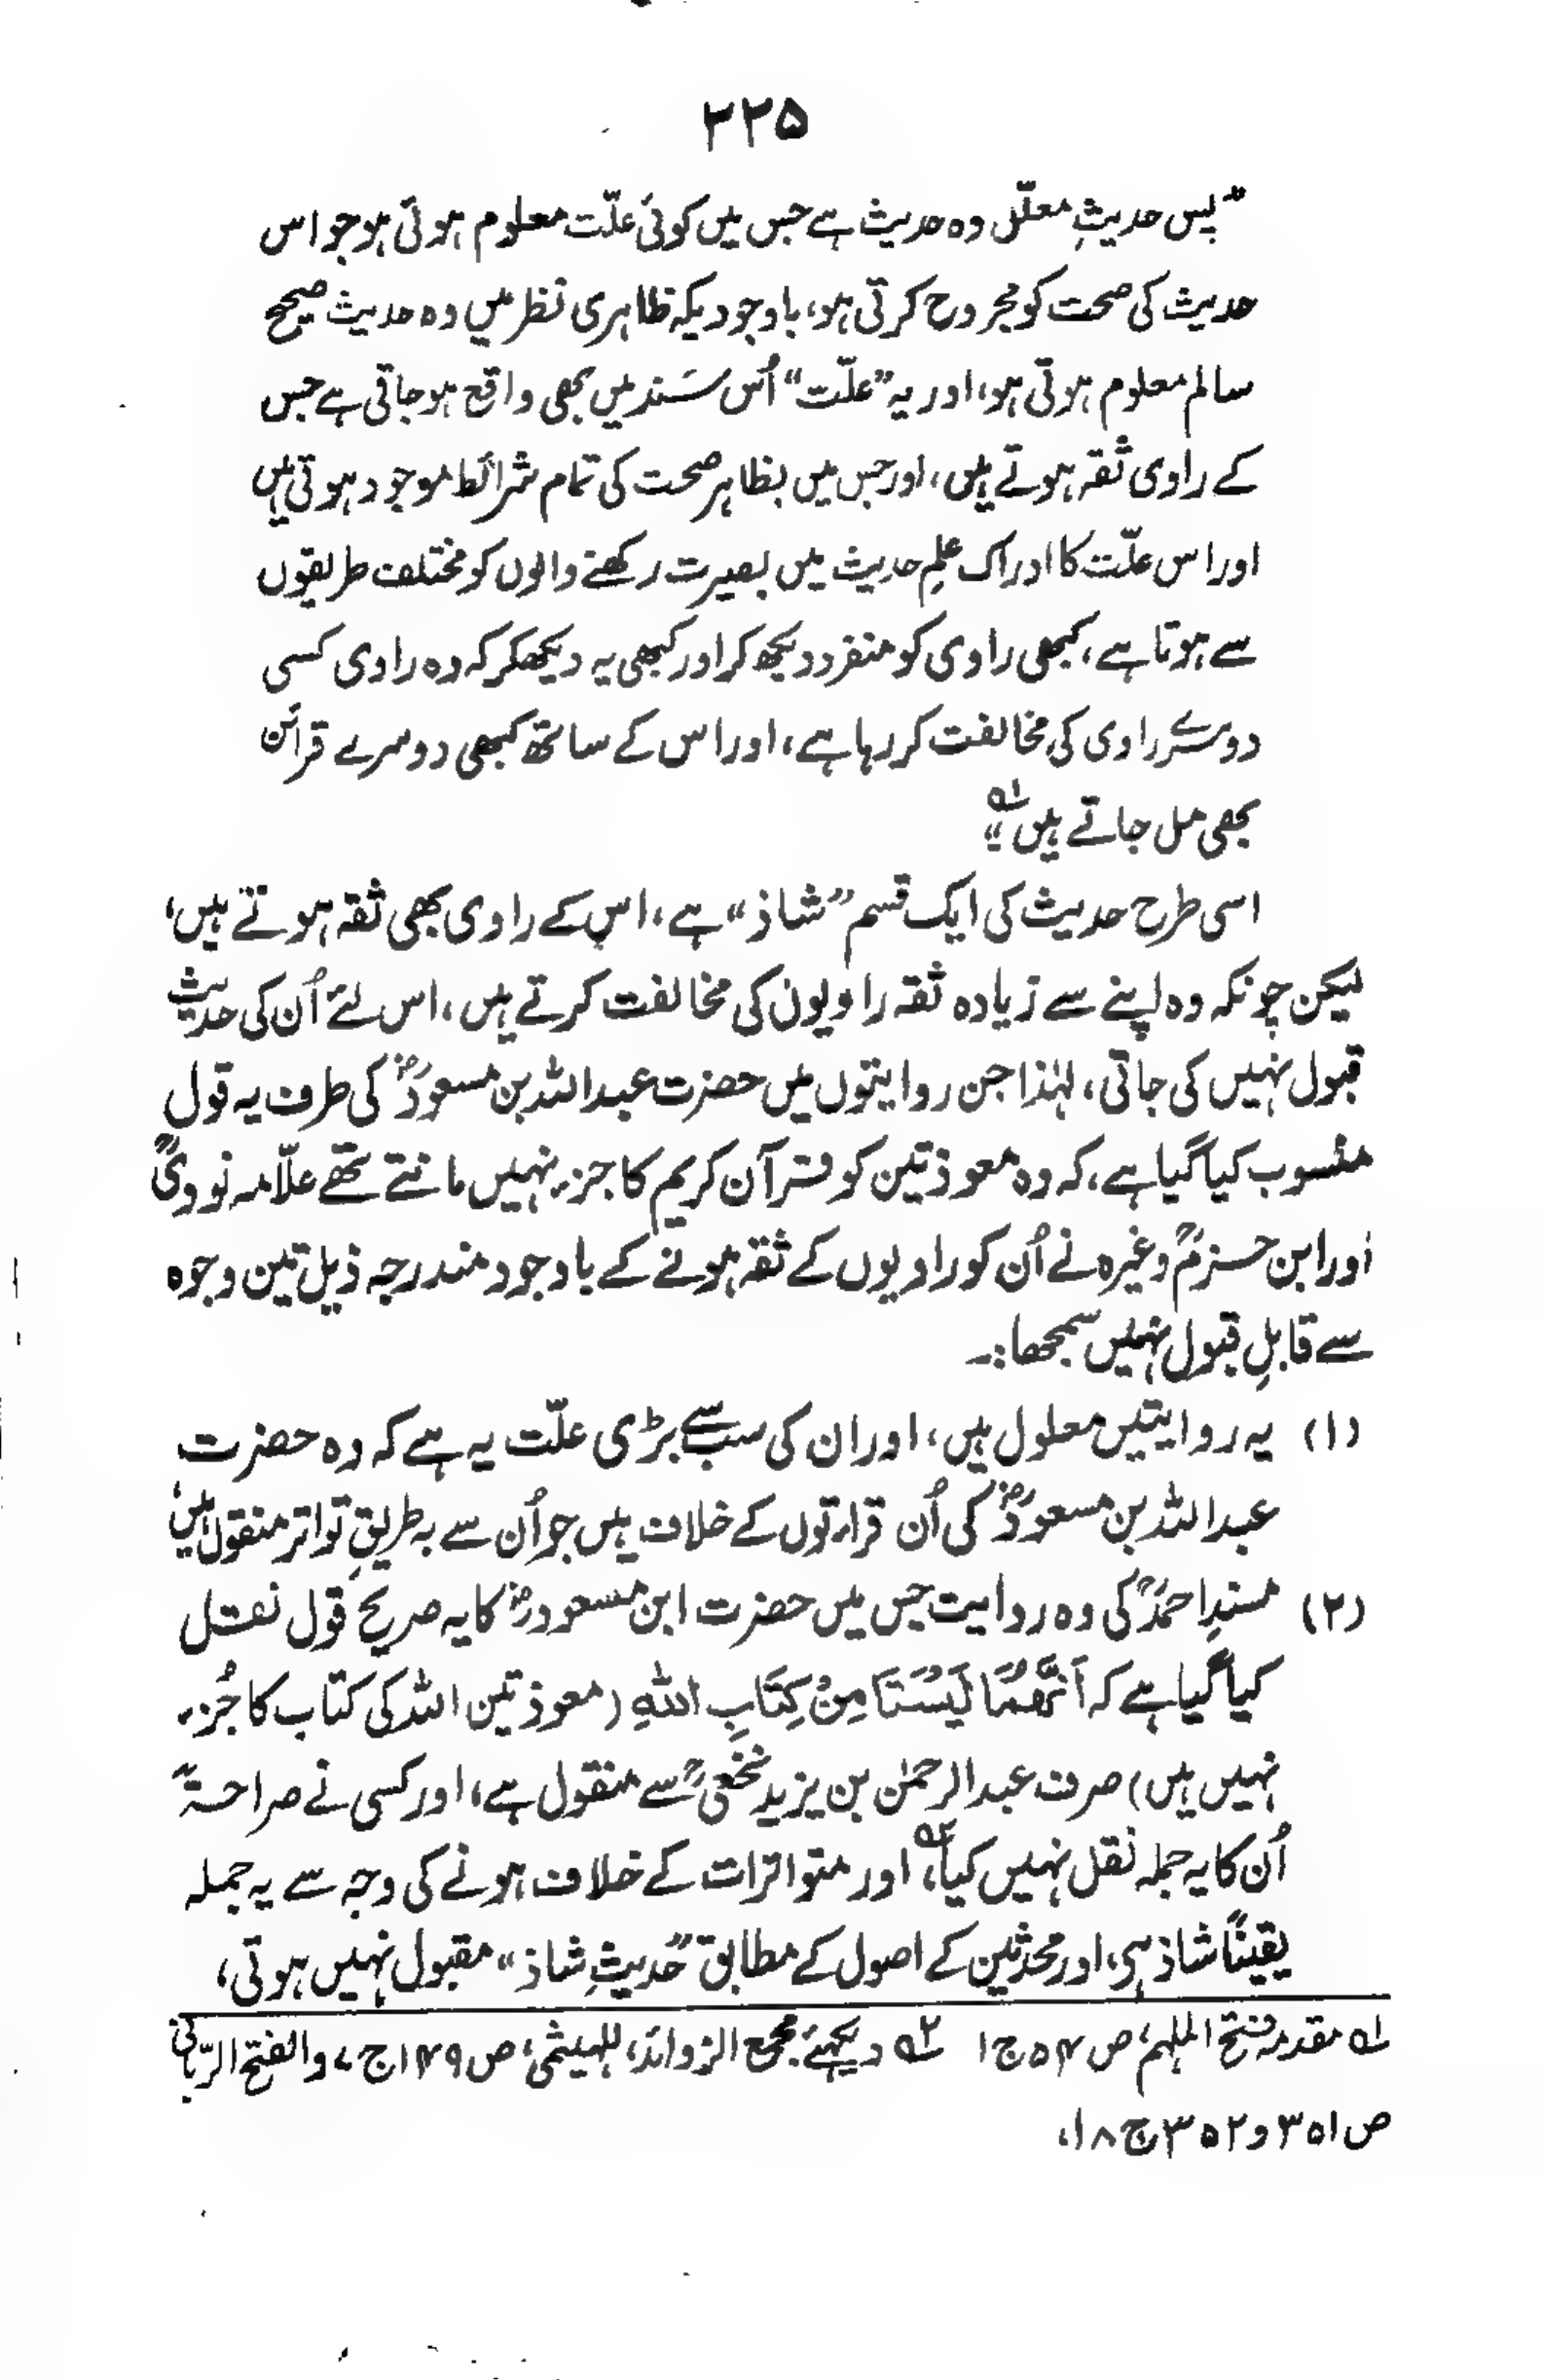 ۲۲۵
”پس حدیثِ معلّل وہ حدیث ہے جس میں کوئی علّت معلوم ہوئی ہو جو اس
حدیث کی صحت کو مجروح کرتی ہو، باوجودیکہ ظاہری نظر میں وہ حدیث صحیح
سالم معلوم ہوتی ہو، اور یہ ”علّت“ اُس سَند میں بھی واقع ہوجاتی ہے جس
کے راوی ثقہ ہوتے ہیں، اور جس میں بظاہر صحت کی تمام شرائط موجود ہوتی ہیں
اور اس علّت کا ادراک علمِ حدیث میں بصیرت رکھنے والوں کو مختلف طریقوں
سے ہوتا ہے، کبھی راوی کو منفرد دیکھ کر اور کبھی یہ دیکھ کر کہ وہ راوی کسی
دوسرے راوی کی مخالفت کر رہا ہے، اور اس کے ساتھ کبھی دوسرے قرائن
بھی مل جاتے ہیں“ لہ
اسی طرح حدیث کی ایک قسم ”شاذ“ ہے، اس کے راوی بھی ثقہ ہوتے ہیں،
لیکن چونکہ وہ اپنے سے زیادہ ثقہ راویوں کی مخالفت کرتے ہیں، اس لئے اُن کی حدیث
قبول نہیں کی جاتی، لہٰذا جن روایتوں میں حضرت عبداللہ بن مسعودؓ کی طرف یہ قول
منسوب کیا گیا ہے، کہ وہ معوذتین کو قرآن کریم کا جزء نہیں مانتے تھے علّامہ نوویؒ
اور ابن حزمؒ وغیرہ نے اُن کو راویوں کے ثقہ ہونے کے باوجود مندرجہ ذیل تین وجوہ
سے قابلِ قبول نہیں سمجھا:۔
(۱) یہ روایتیں معلول ہیں، اور ان کی سب سے بڑی علّت یہ ہے کہ وہ حضرت
عبداللہ بن مسعودؓ کی اُن قراءتوں کے خلاف ہیں جو اُن سے بہ طریقِ تواتر منقول ہیں،
(۲) مسندِ احمدؒ کی وہ روایت جس میں حضرت ابن مسعودؓ کا یہ صریح قول نقل
کیا گیا ہے کہ اَنَّھُمَا لَیْسَتَا مِنْ کِتَابِ اللہِ (معوذتین اللہ کی کتاب کا جُزء
نہیں ہیں) صرف عبدالرحمٰن بن یزید نخعیؒ سے منقول ہے، اور کسی نے صراحۃً
اُن کا یہ جملہ نقل نہیں کیا، ۲ہ اور متواترات کے خلاف ہونے کی وجہ سے یہ جملہ
یقیناً شاذ ہی، اور محدثین کے اصول کے مطابق ”حدیثِ شاذ“ مقبول نہیں ہوتی،
لہ مقدمہ فتح الملہمؒ، ص ۵۴ ج ۱ ۲ہ دیکھئے مجمع الزوائد، للہیثمیؒ، ص ۱۴۹ ج ۷، والفتح الرّبانی
ص ۳۵۱ و ۳۵۲ ج ۱۸،